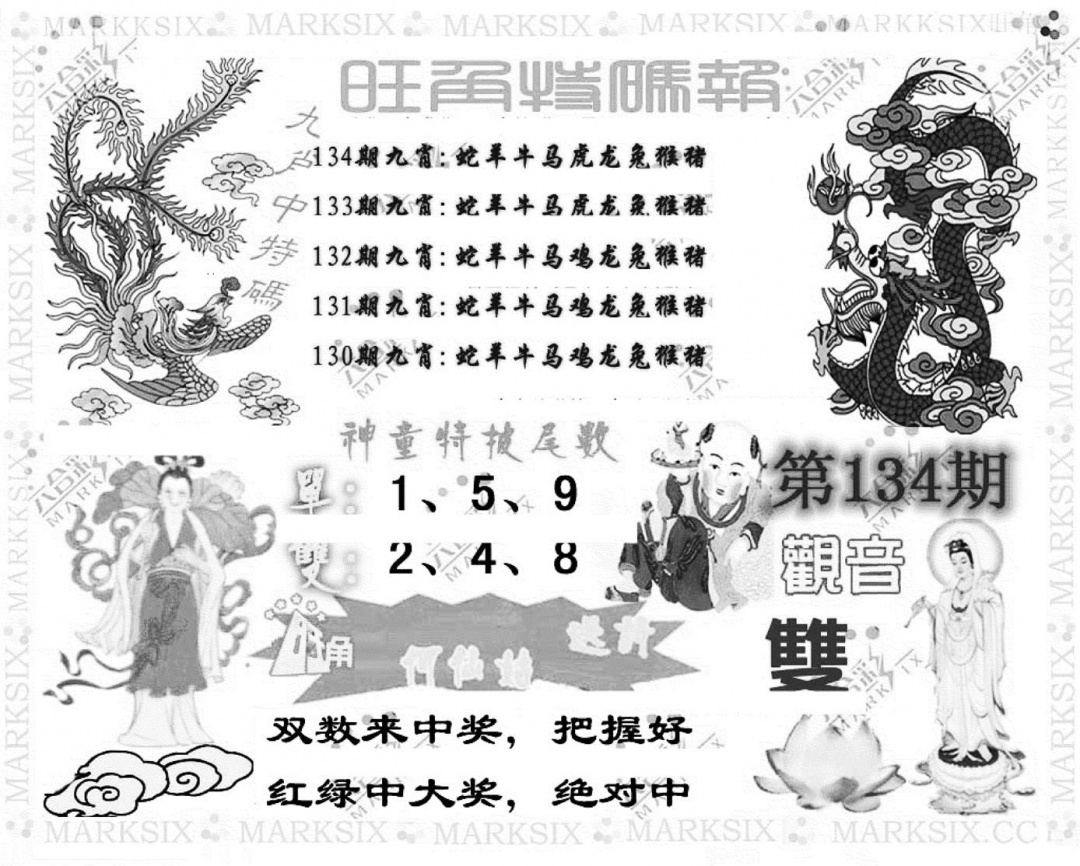 MARKSIX MARKSIX MARKSIX MARKKSIX
旺角特碼報
九肖中特碼
134期九宵:蛇羊牛马虎龙兔猴猪
133期九宵:蛇羊牛马虎龙兔猴猪
132期九宵:蛇羊牛马鸡龙兔猴猪
131期九宵:蛇羊牛马鸡龙兔猴猪
130期九宵:蛇羊牛马鸡龙兔猴猪
神童特披尾數
單: 1、5、9
雙: 2、4、8
第134期
觀音
雙
何仙姑
双数来中奖，把握好
红绿中大奖，绝对中
MARKSIX MARKSIX MARKSIX MARKSIX MARKSIX.CC